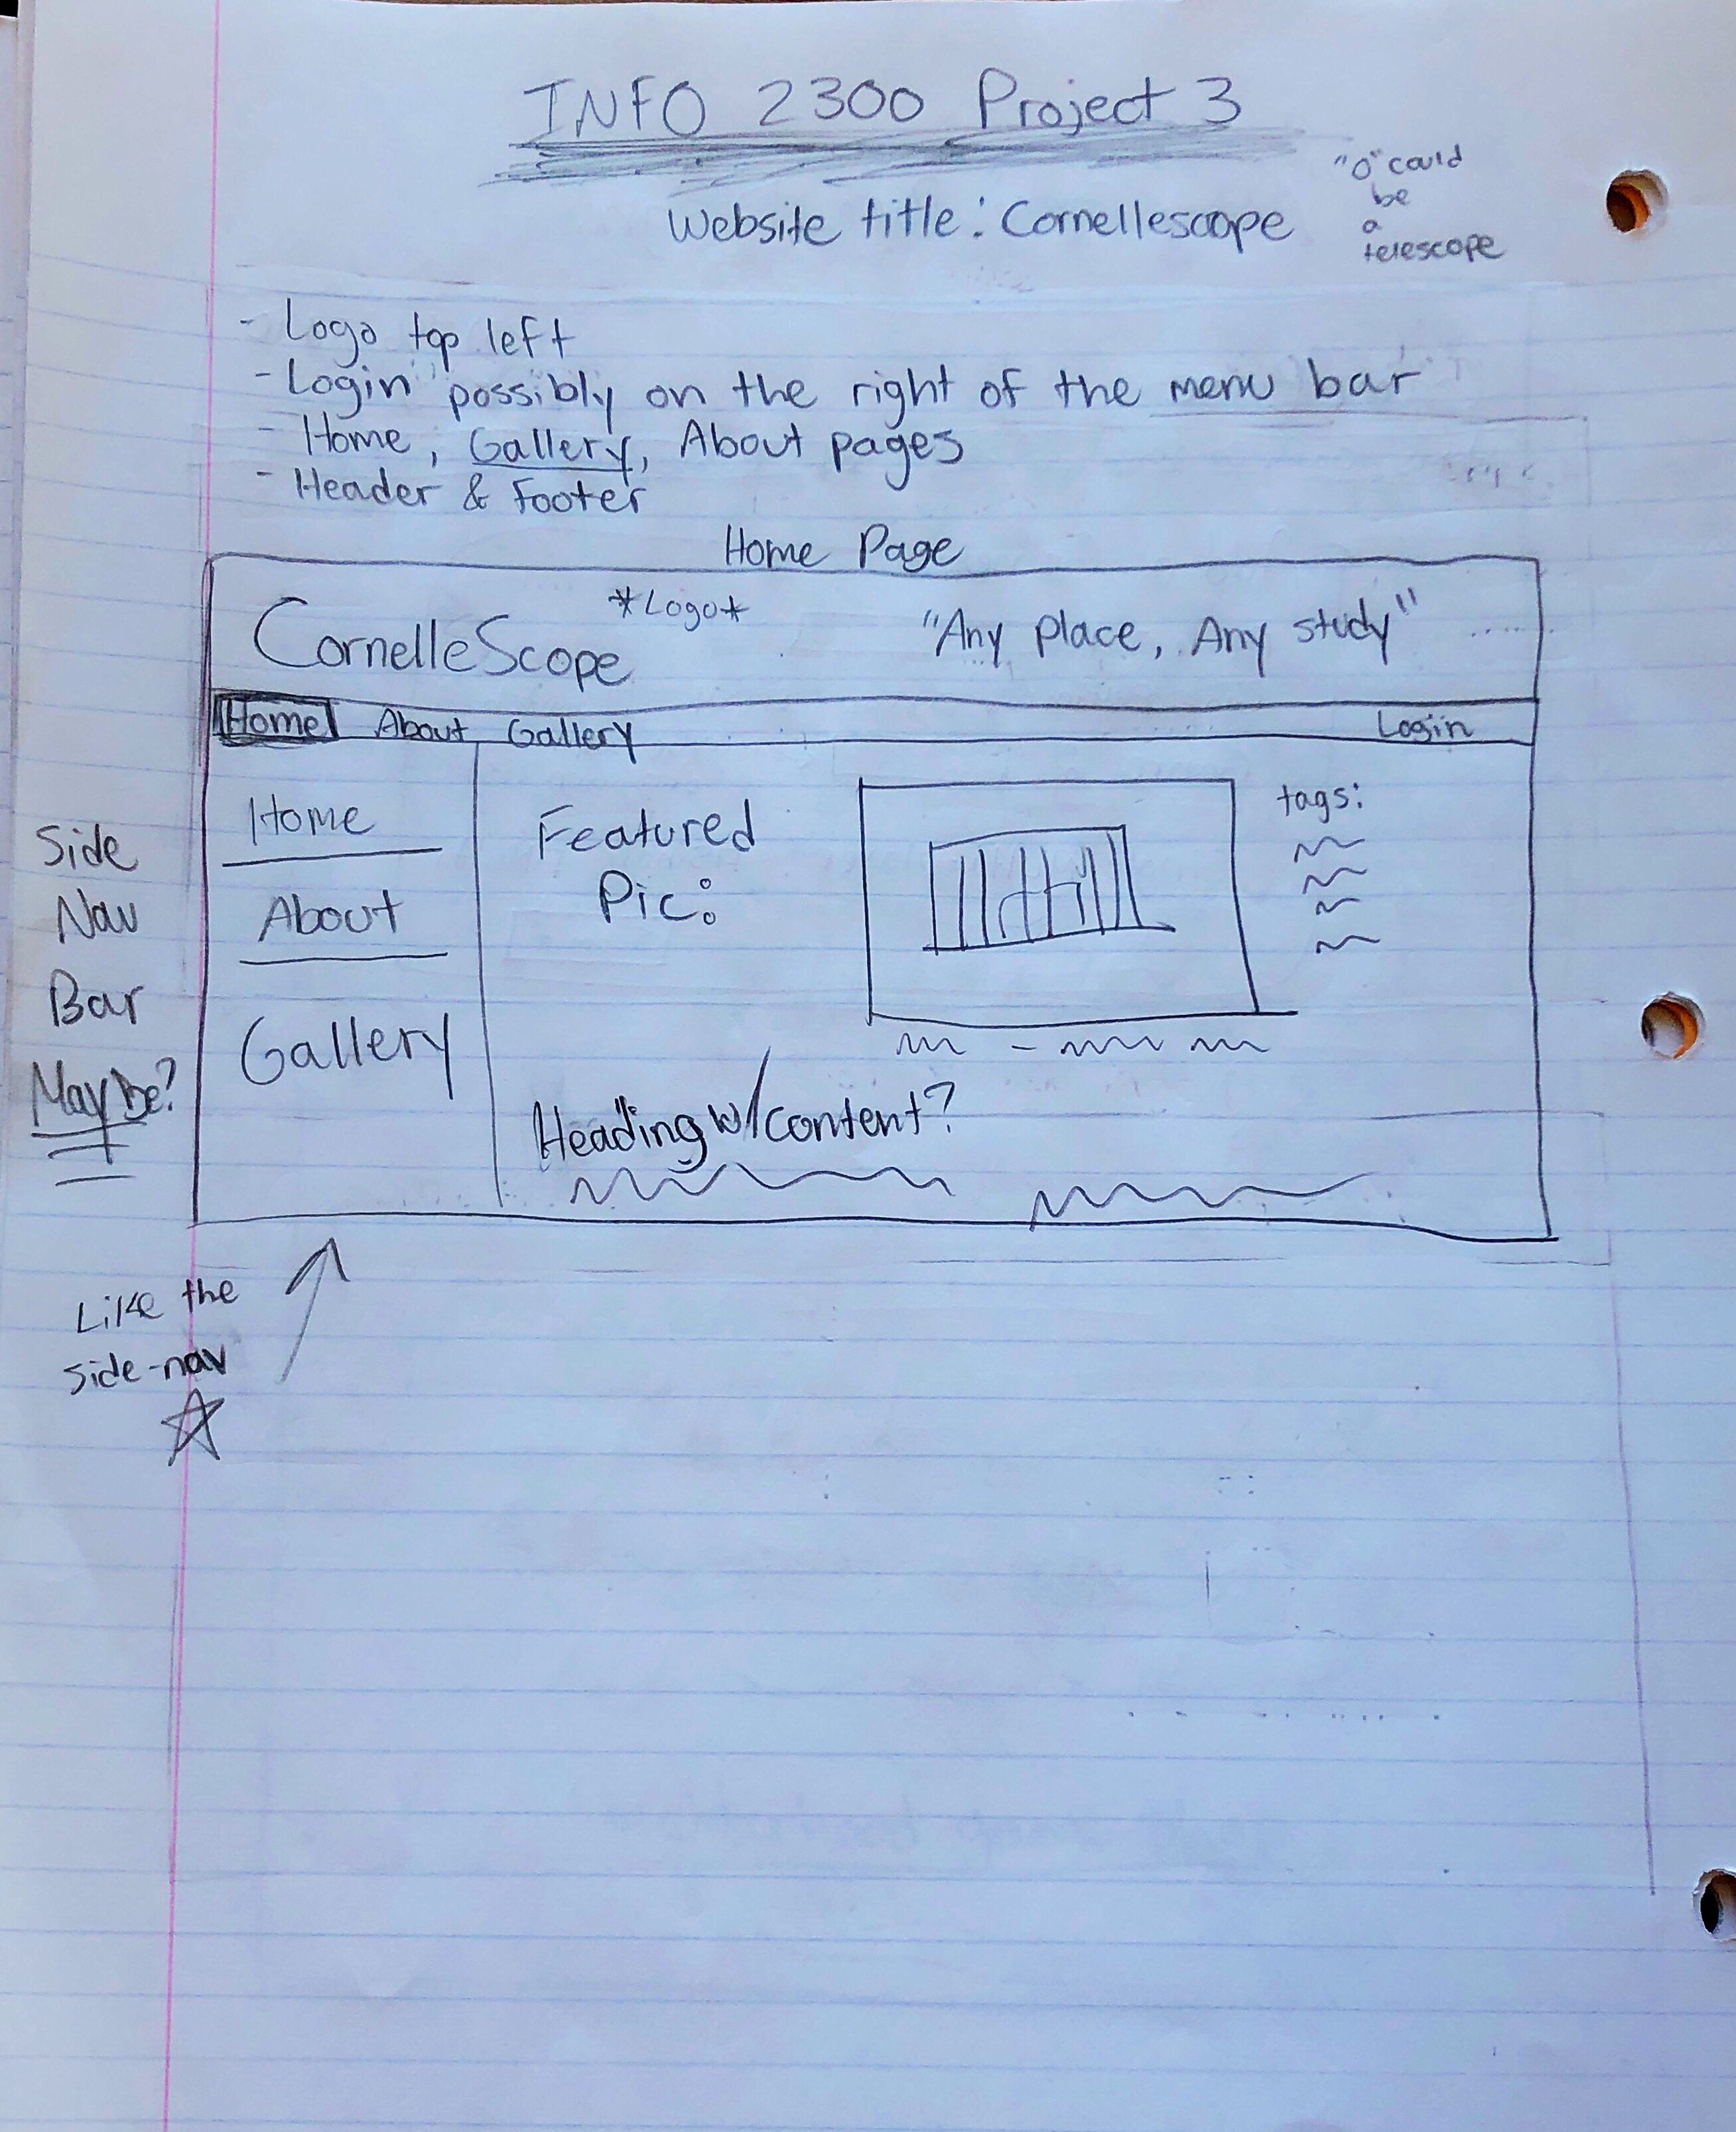 INFO 2300 Project 3
Website title: Cornellescope
"O" could
be
a
telescope
- Logo top left
- Login possibly on the right of the menu bar
- Home, Gallery, About pages
- Header & Footer
Home Page
CornelleScope
*Logo*
"Any place, Any study"
Home About Gallery Login
Side
Nav
Bar
Maybe?
Home
About
Gallery
Featured
Pic:
tags:
Heading w/content?
Like the
side-nav